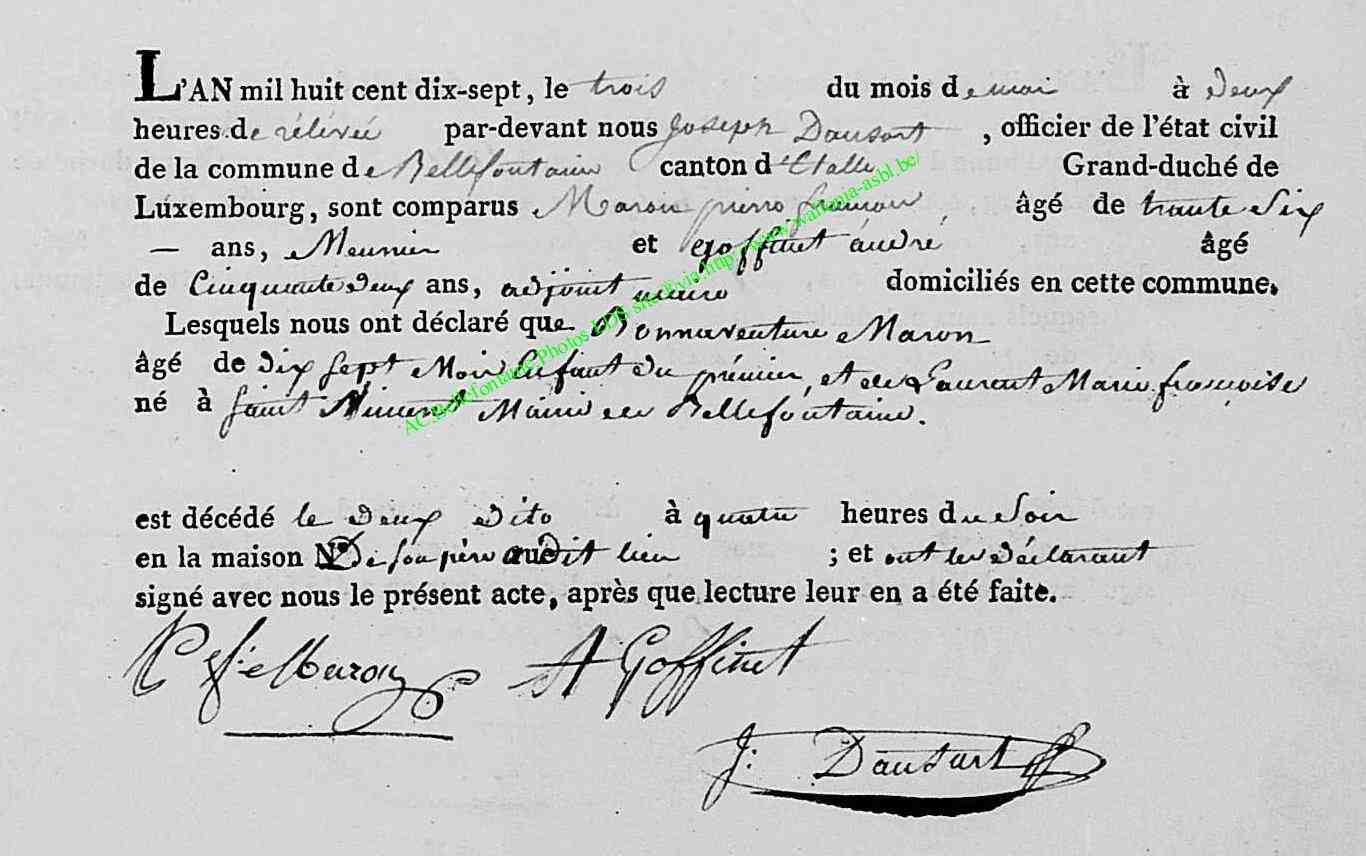 L'AN mil huit cent dix-sept, le trois du mois de mai à deux
heures de rélévée par-devant nous Joseph Dausart, officier de l'état civil
de la commune de Bellefontaine canton d'Etalle Grand-duché de
Luxembourg, sont comparus Maron pierre françois, âgé de trante Six
— ans, Meunier et goffinet andré âgé
de Cinquante deux ans, adjoint maire domiciliés en cette commune.
Lesquels nous ont déclaré que Bonnaventure Maron
âgé de dix sept Mois Enfant du prémier, et de Laurent Marie françoise
né à saint Vincent Mairie de Bellefontaine.
est décédé le deux dito à quatre heures du Soir
en la maison N° De son père audit lieu ; et ont les déclarant
signé avec nous le présent acte, après que lecture leur en a été faite.
P f: Maron A Goffinet
J: Dausart